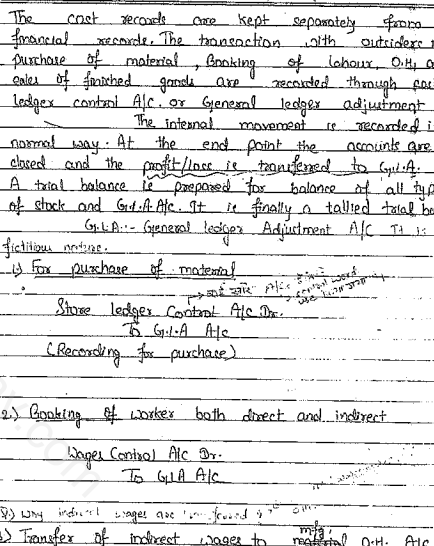 The cost records are kept separately from
financial records. The transaction with outsiders
purchase of material, Booking of labour, O.H, a
sales of finished goods are recorded through
ledger control A/c. or General ledger adjustment
The internal movement is recorded i
normal way. At the end point the accounts are
closed and the profit/loss is transferred to G.L.A.
A trial balance is prepared for balance of all typ
of stock and G.L.A A/c. It is finally a tallied trial ba
G.L.A:- General ledger Adjustment A/c It is
fictitious nature.
1) For purchase of material
Store ledger Control A/c Dr.
To G.L.A A/c
(Recording for purchase)
2.) Booking of worker both direct and indirect
Wages Control A/c Dr.
To GLA A/c
Q.) Why indirect wages are
) Transfer of indirect wages to mfg. O.H. A/c